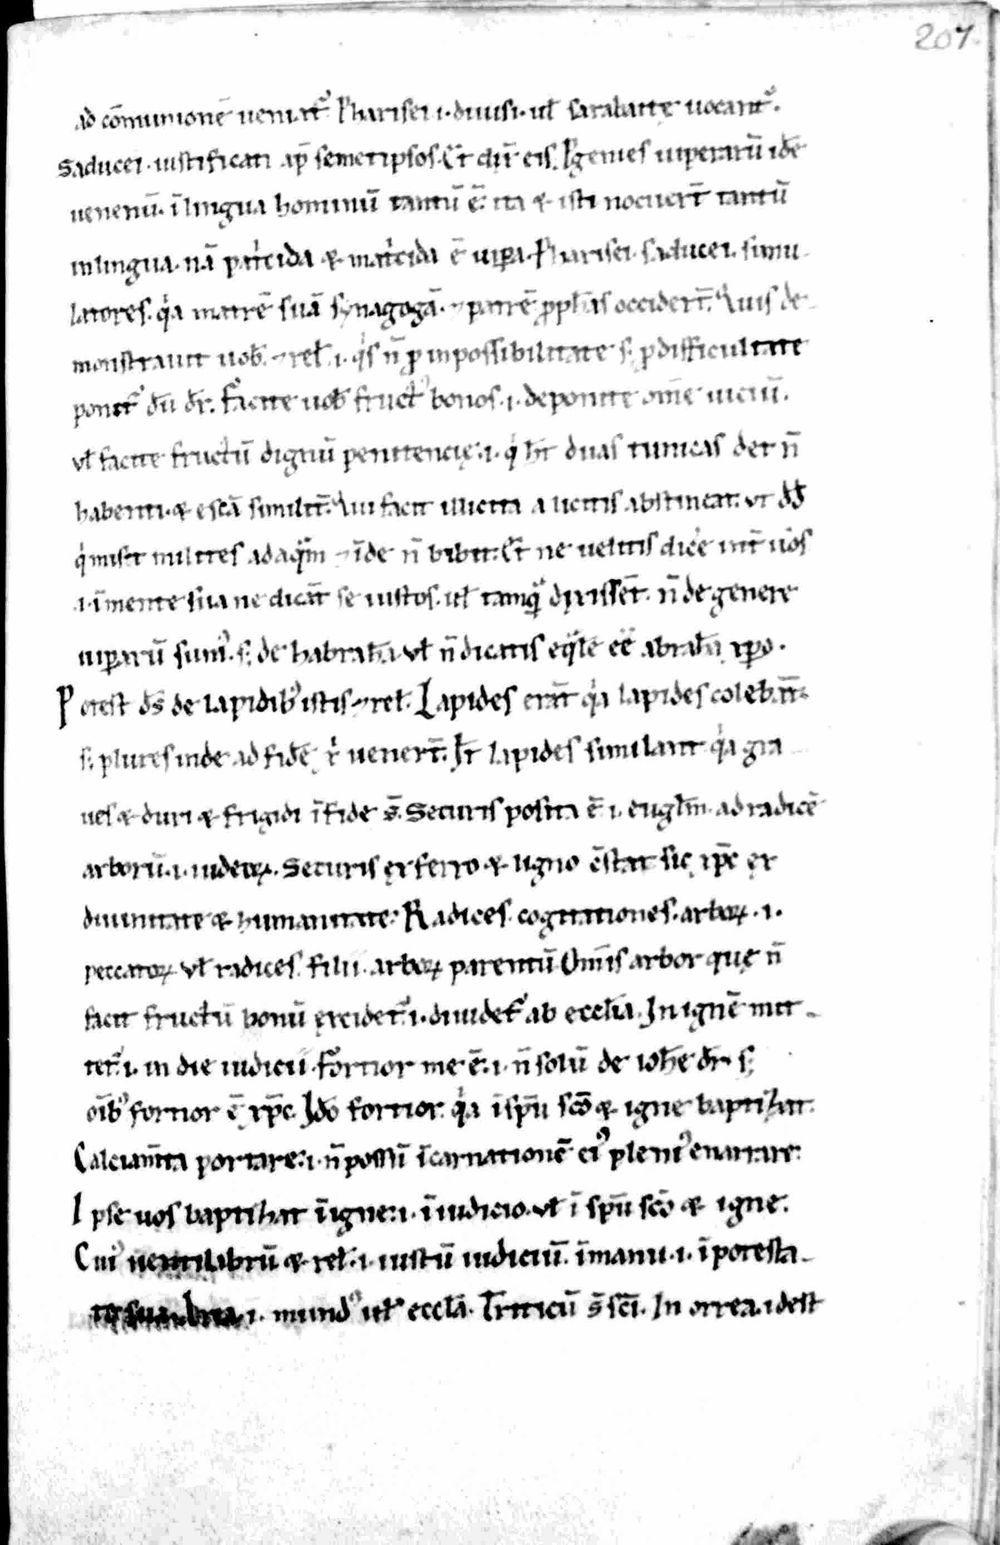 207.
ad cōmunionē ueniu̅t᷑ Pharisei .i. diuisi. ul̄ sarabaite uocant᷑.
Saducei. iustificati ap̄ semetipsos. Et dix̄ eis. Pgenies uiperarū idē
uenenū. ī lingua hominū tantū ē. ita & isti nocuer̄t tantū
in lingua. nā patⁱcida & matⁱcida ē uipa. Pharisei. saducei. simu
latores. qⁱa matrē suā synagogā. ⁊ patrē ꝓph̄as occider̄t. Quis de
monstrauit uob̄. ⁊ rel̄ .i. qⁱs n̄ ꝓ inpossibilitate s; ꝓ difficultate
ponit᷑ dū dr̄. Facite uob̄ fructꝰ bonos .i. deponite om̄e uiciū.
ul̄ facite fructū dignū penitencię .i. qⁱ h̄t duas tunicas det n̄
habenti. & escā similit̄. Qui facit illicita a licitis abstineat. ut dd̄
qⁱ misit milites ad aquā ⁊ īde n̄ bibit. Et ne uelitis dic̄e int̄ uōs
.i. ī mente sua ne dicāt se iustos. ul̄ tamqͣ᷑ dixissēt. n̄ de genere
uiperarū sumꝰ. s; de habrahā. ul̄ n̄ dicatis eqͣlē eē abrahā xp̄o.
Potest ds̄ de lapidibꝰ istis ⁊ rel̄. Lapides erāt qⁱa lapides coleb̄nt
s; plures inde ad fidē xⁱ uener̄t. Et lapides simulant qⁱa gra
ues & duri & frigidi ī fide s̄. Securis posita ē .i. eugl̄m. ad radicē
arborū .i. iudeoꝝ. Securis ex ferro & ligno c̄stat sic xp̄c ex
diuinitate & humanitate. Radices. cogitationes. arboꝝ .i.
peccatoꝝ ul̄ radices. filii. arboꝝ parentū Om̄is arbor quę n̄
facit fructū bonū excidet᷑ .i. diuidet᷑ ab eccl̄ia. In ignē mit
tet᷑ .i. in die iudicii. Fortior me ē .i. n̄ solū de ioh̄e dr̄ s;
oīb; fortior ē xp̄c. Ido fortior. qⁱa ī spū scō & igne baptizat.
Calciam̄ta portare .i. n̄ possū īcarnationē eiꝰ pleniꝰ enarrare.
Ipse uos baptizat ī igne .i. ī iudicio. ul̄ ī spū scō & igne.
Cuiꝰ uentilabrū & rel̄ .i. iustū iudiciū. ī manu .i. ī potesta
te sua. Area .i. mundꝰ ul̄ eccl̄a. Triticū s̄ scī. In orrea. idest